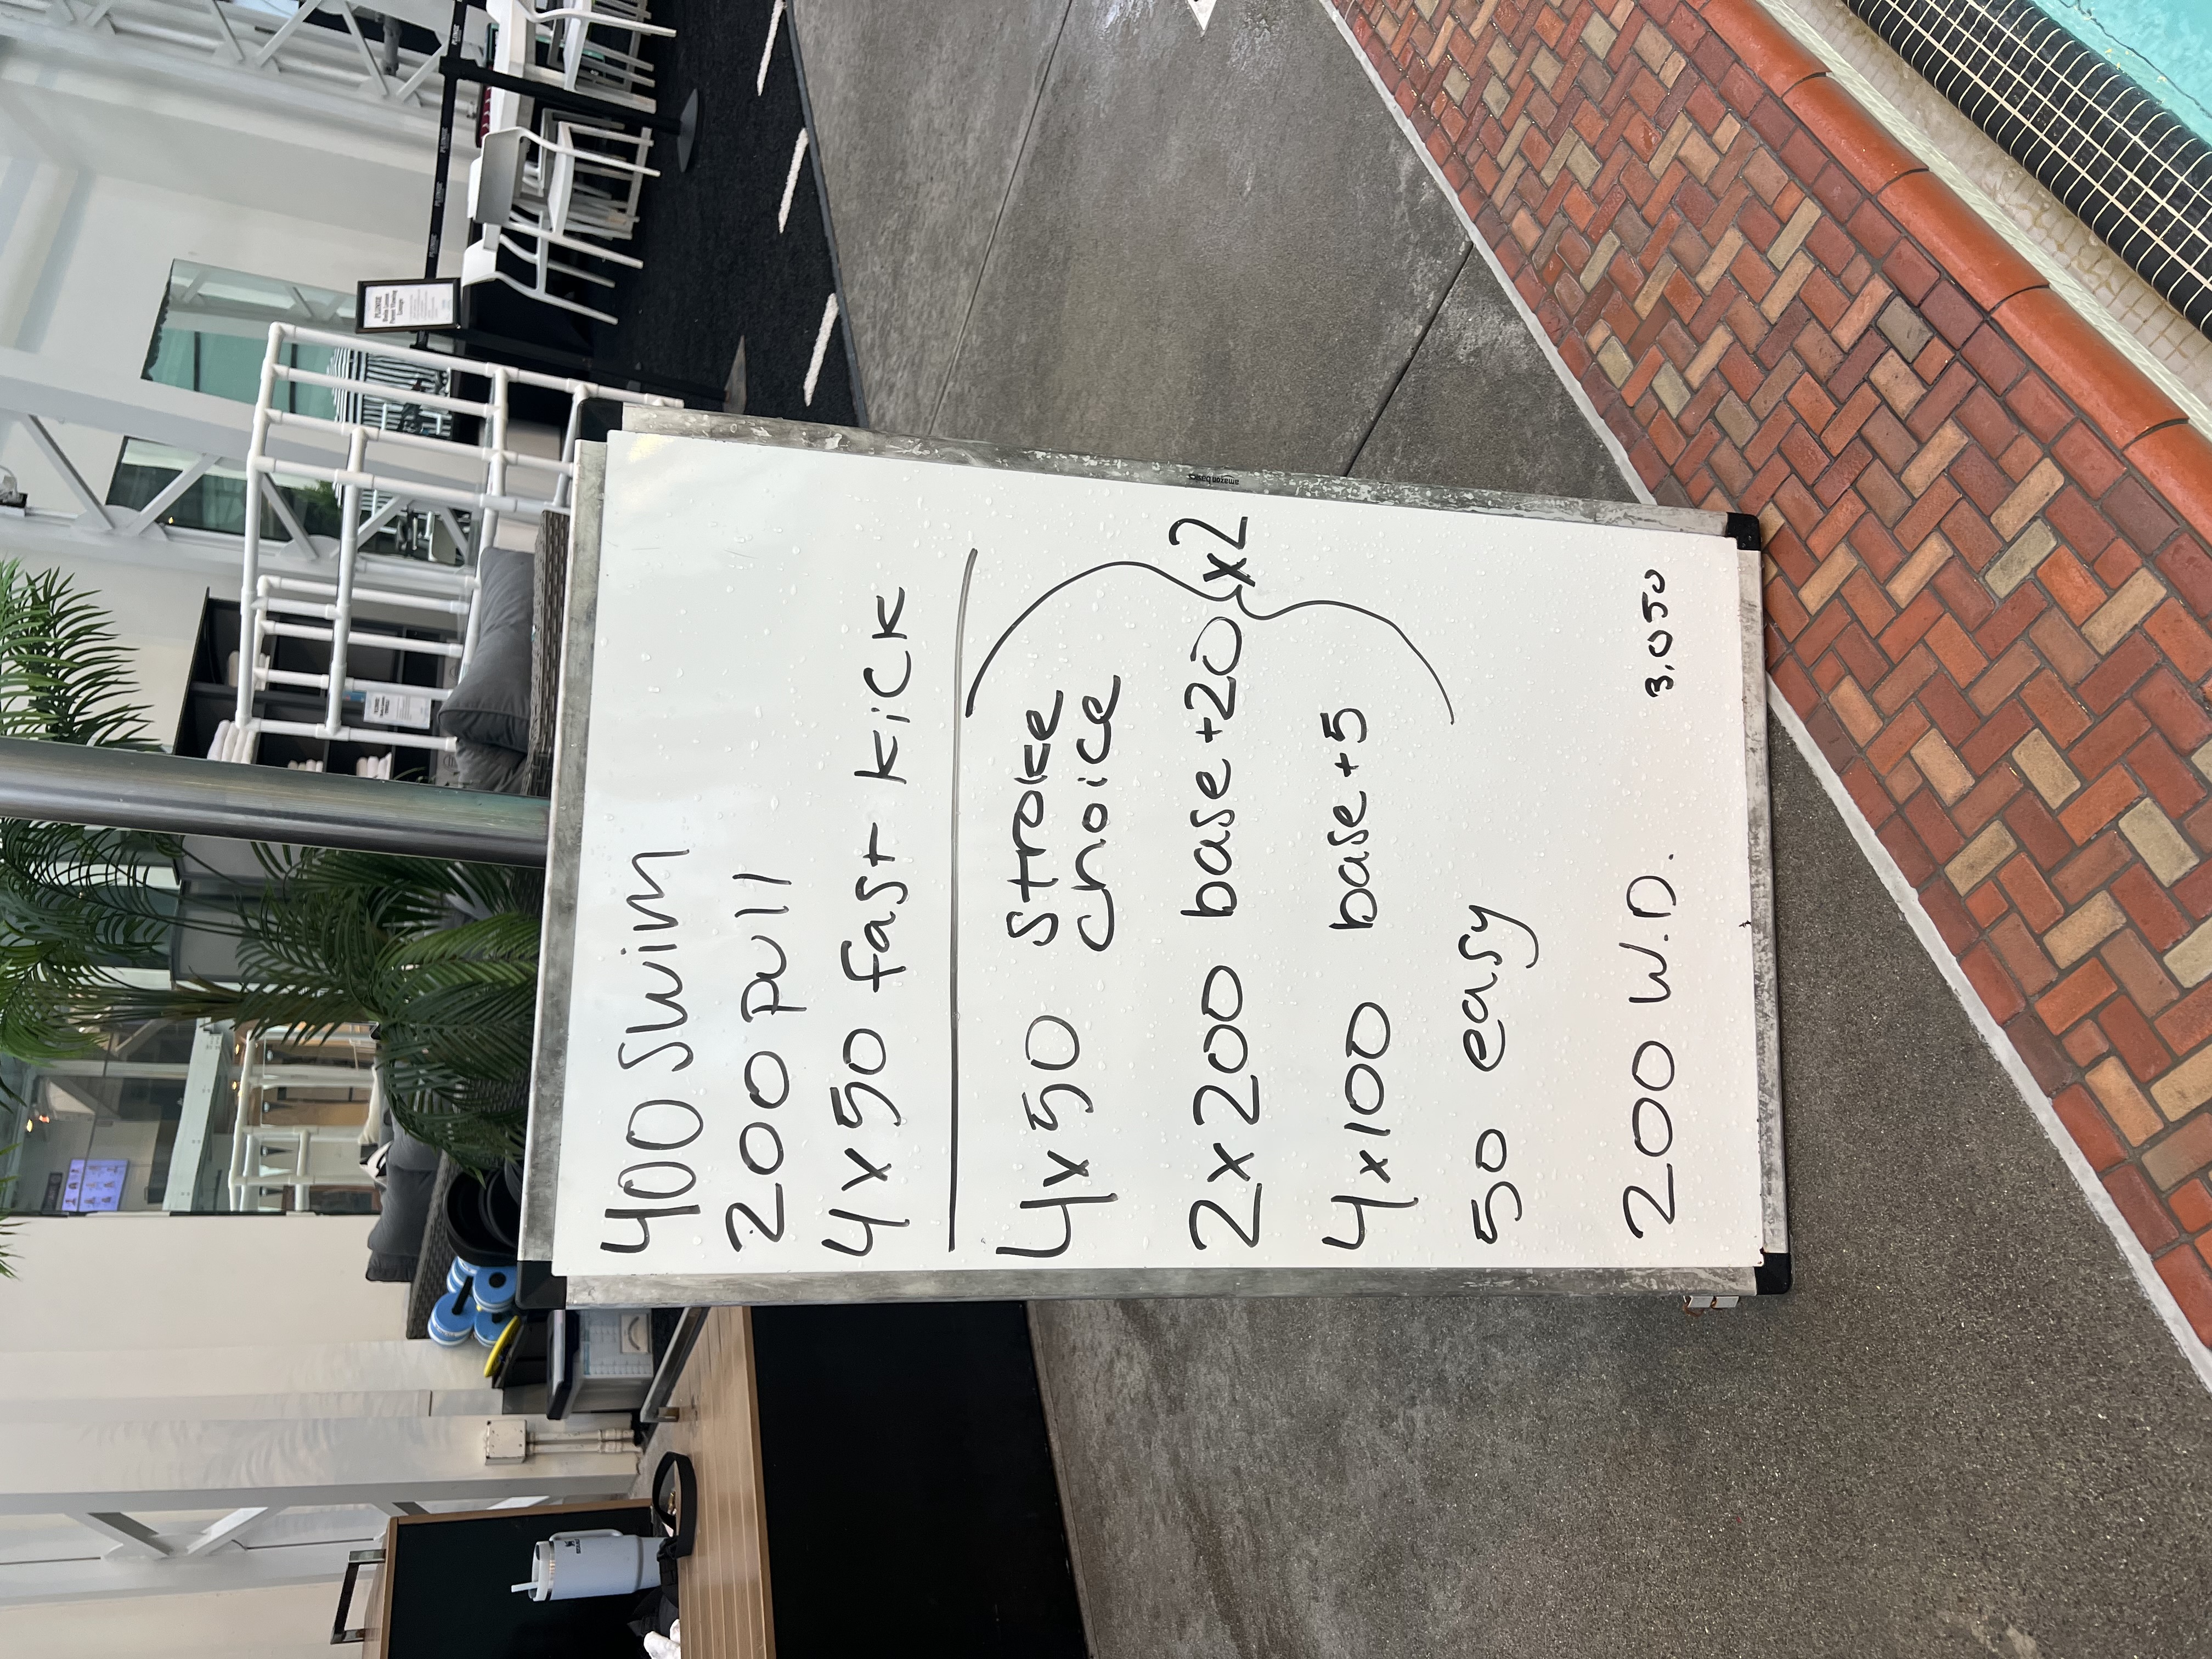 400 Swim
200 pull
4x50 fast kick
4x50 Stroke
Choice
2x200 base+20 x2
4x100 base+5
50 easy
200 W.D.
3,050
amazon basics
PLUNGE